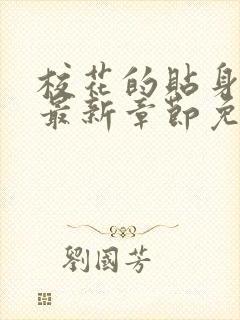 校花的貼身
最新章節免
劉國芳